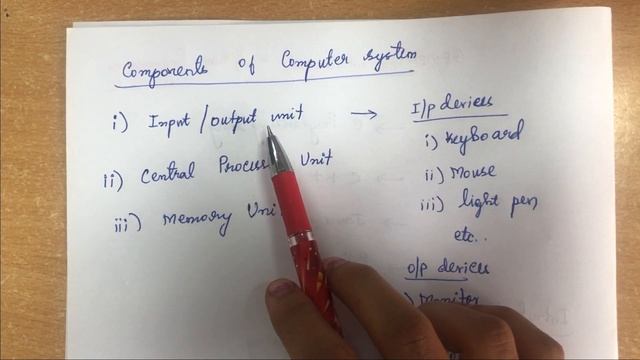 Components of Computer system
i) Input / output unit →
ii) Central Process Unit
iii) Memory Uni
I/p devices
i) Keyboard
ii) Mouse
iii) light pen
etc..
o/p devices
i) Monitor